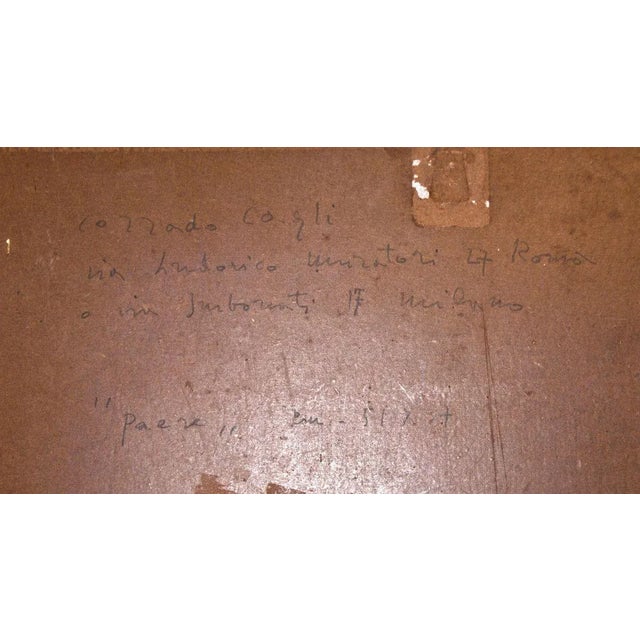 Corrado Cagli
via Ludovico Muratori 27 Roma
o via Imbonati 17 Milano
"Paese" cm. 51 x